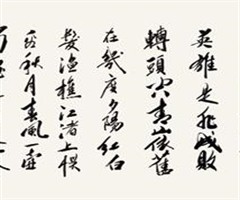 英雄是非成敗
轉頭空青山依舊
在幾度夕陽紅白
髮漁樵江渚上慣
看秋月春風一壺